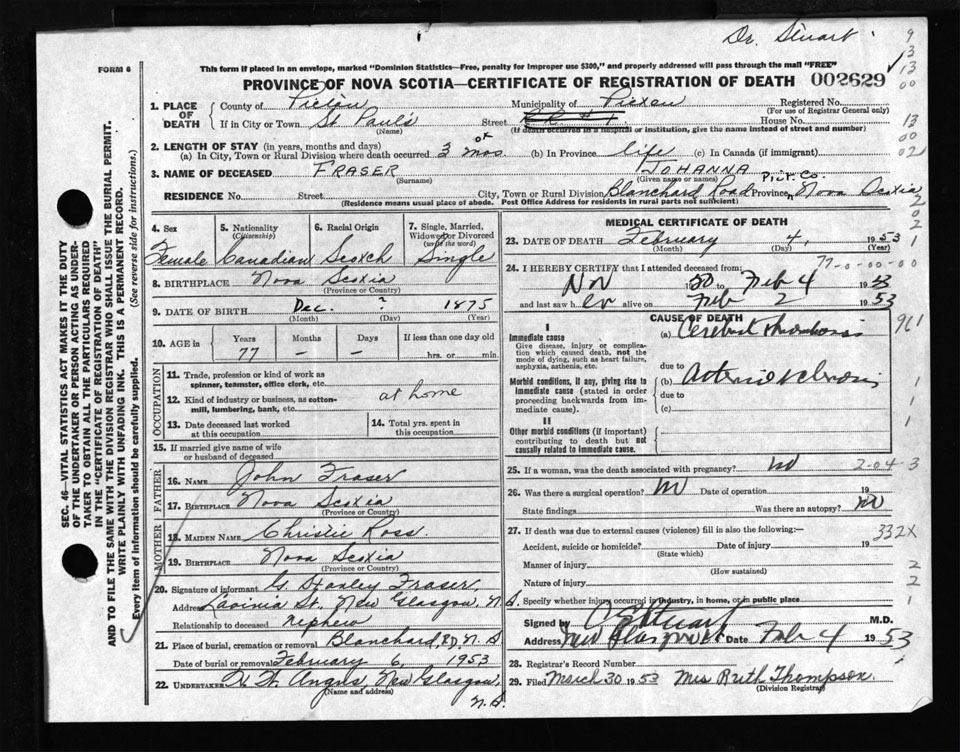 Dr. Stuart
FORM 6
This form if placed in an envelope, marked "Dominion Statistics—Free, penalty for improper use $300," and properly addressed will pass through the mail "FREE"
PROVINCE OF NOVA SCOTIA—CERTIFICATE OF REGISTRATION OF DEATH 002629
1. PLACE OF DEATH
County of Pictou Municipality of Pictou Registered No.
(For use of Registrar General only)
If in City or Town St. Paul's Street R.R. #1 House No.
(Name) (If death occurred in a hospital or institution, give the name instead of street and number)
2. LENGTH OF STAY (in years, months and days)
(a) In City, Town or Rural Division where death occurred 3 mos (b) In Province life (c) In Canada (if immigrant)
3. NAME OF DECEASED FRASER JOHANNA
(Surname) (Given name or names)
Pict. Co.
RESIDENCE No. Street City, Town or Rural Division Blanchard Road Province Nova Scotia
(Residence means usual place of abode. Post Office Address for residents in rural parts not sufficient)
4. Sex Female
5. Nationality (Citizenship) Canadian
6. Racial Origin Scotch
7. Single, Married, Widowed or Divorced (write the word) Single
8. BIRTHPLACE Nova Scotia
(Province or Country)
9. DATE OF BIRTH Dec. ? 1875
(Month) (Day) (Year)
10. AGE in Years Months Days If less than one day old
77 – – hrs. or min.
OCCUPATION
11. Trade, profession or kind of work as spinner, teamster, office clerk, etc.
12. Kind of industry or business, as cotton-mill, lumbering, bank, etc. at home
13. Date deceased last worked at this occupation
14. Total yrs. spent in this occupation
15. If married give name of wife or husband of deceased
FATHER
16. NAME John Fraser
17. BIRTHPLACE Nova Scotia
(Province or Country)
MOTHER
18. MAIDEN NAME Christie Ross
19. BIRTHPLACE Nova Scotia
(Province or Country)
20. Signature of informant G. Stanley Fraser,
Address Lavinia St. New Glasgow, N.S.
Relationship to deceased nephew
21. Place of burial, cremation or removal Blanchard, RD. N.S
Date of burial or removal February 6, 1953
22. UNDERTAKER H. W. Angus New Glasgow,
(Name and address) N.S.
MEDICAL CERTIFICATE OF DEATH
23. DATE OF DEATH February 4, 1953
(Month) (Day) (Year)
77-0-00-00
24. I HEREBY CERTIFY that I attended deceased from:
Nov Feb 4 1953
and last saw her alive on Feb 2 1953
CAUSE OF DEATH
I
Immediate cause
Give disease, injury or complication which caused death, not the mode of dying, such as heart failure, asphyxia, asthenia, etc.
(a) Cerebral thrombosis
due to
Morbid conditions, if any, giving rise to immediate cause (stated in order proceeding backwards from immediate cause).
(b) Arteriosclerosis
due to
(c)
II
Other morbid conditions (if important) contributing to death but not causally related to immediate cause.
25. If a woman, was the death associated with pregnancy? no 2-04-3
26. Was there a surgical operation? no Date of operation 19
State findings Was there an autopsy? no
27. If death was due to external causes (violence) fill in also the following:— 332X
Accident, suicide or homicide? Date of injury 19
(State which)
Manner of injury
(How sustained)
Nature of injury
Specify whether injury occurred in industry, in home, or in public place
Signed by Stuart M.D.
Address New Glasgow Date Feb 4 1953
28. Registrar's Record Number
29. Filed March 30 1953 Mrs Ruth Thompson
(Division Registrar)
SEC. 46—VITAL STATISTICS ACT MAKES IT THE DUTY
OF THE UNDERTAKER OR PERSON ACTING AS UNDER-
TAKER TO OBTAIN ALL THE PARTICULARS REQUIRED
IN THE "CERTIFICATE OF REGISTRATION OF DEATH"
AND TO FILE THE SAME WITH THE DIVISION REGISTRAR WHO SHALL ISSUE THE BURIAL PERMIT.
WRITE PLAINLY WITH UNFADING INK. THIS IS A PERMANENT RECORD.
Every item of information should be carefully supplied. (See reverse side for instructions.)